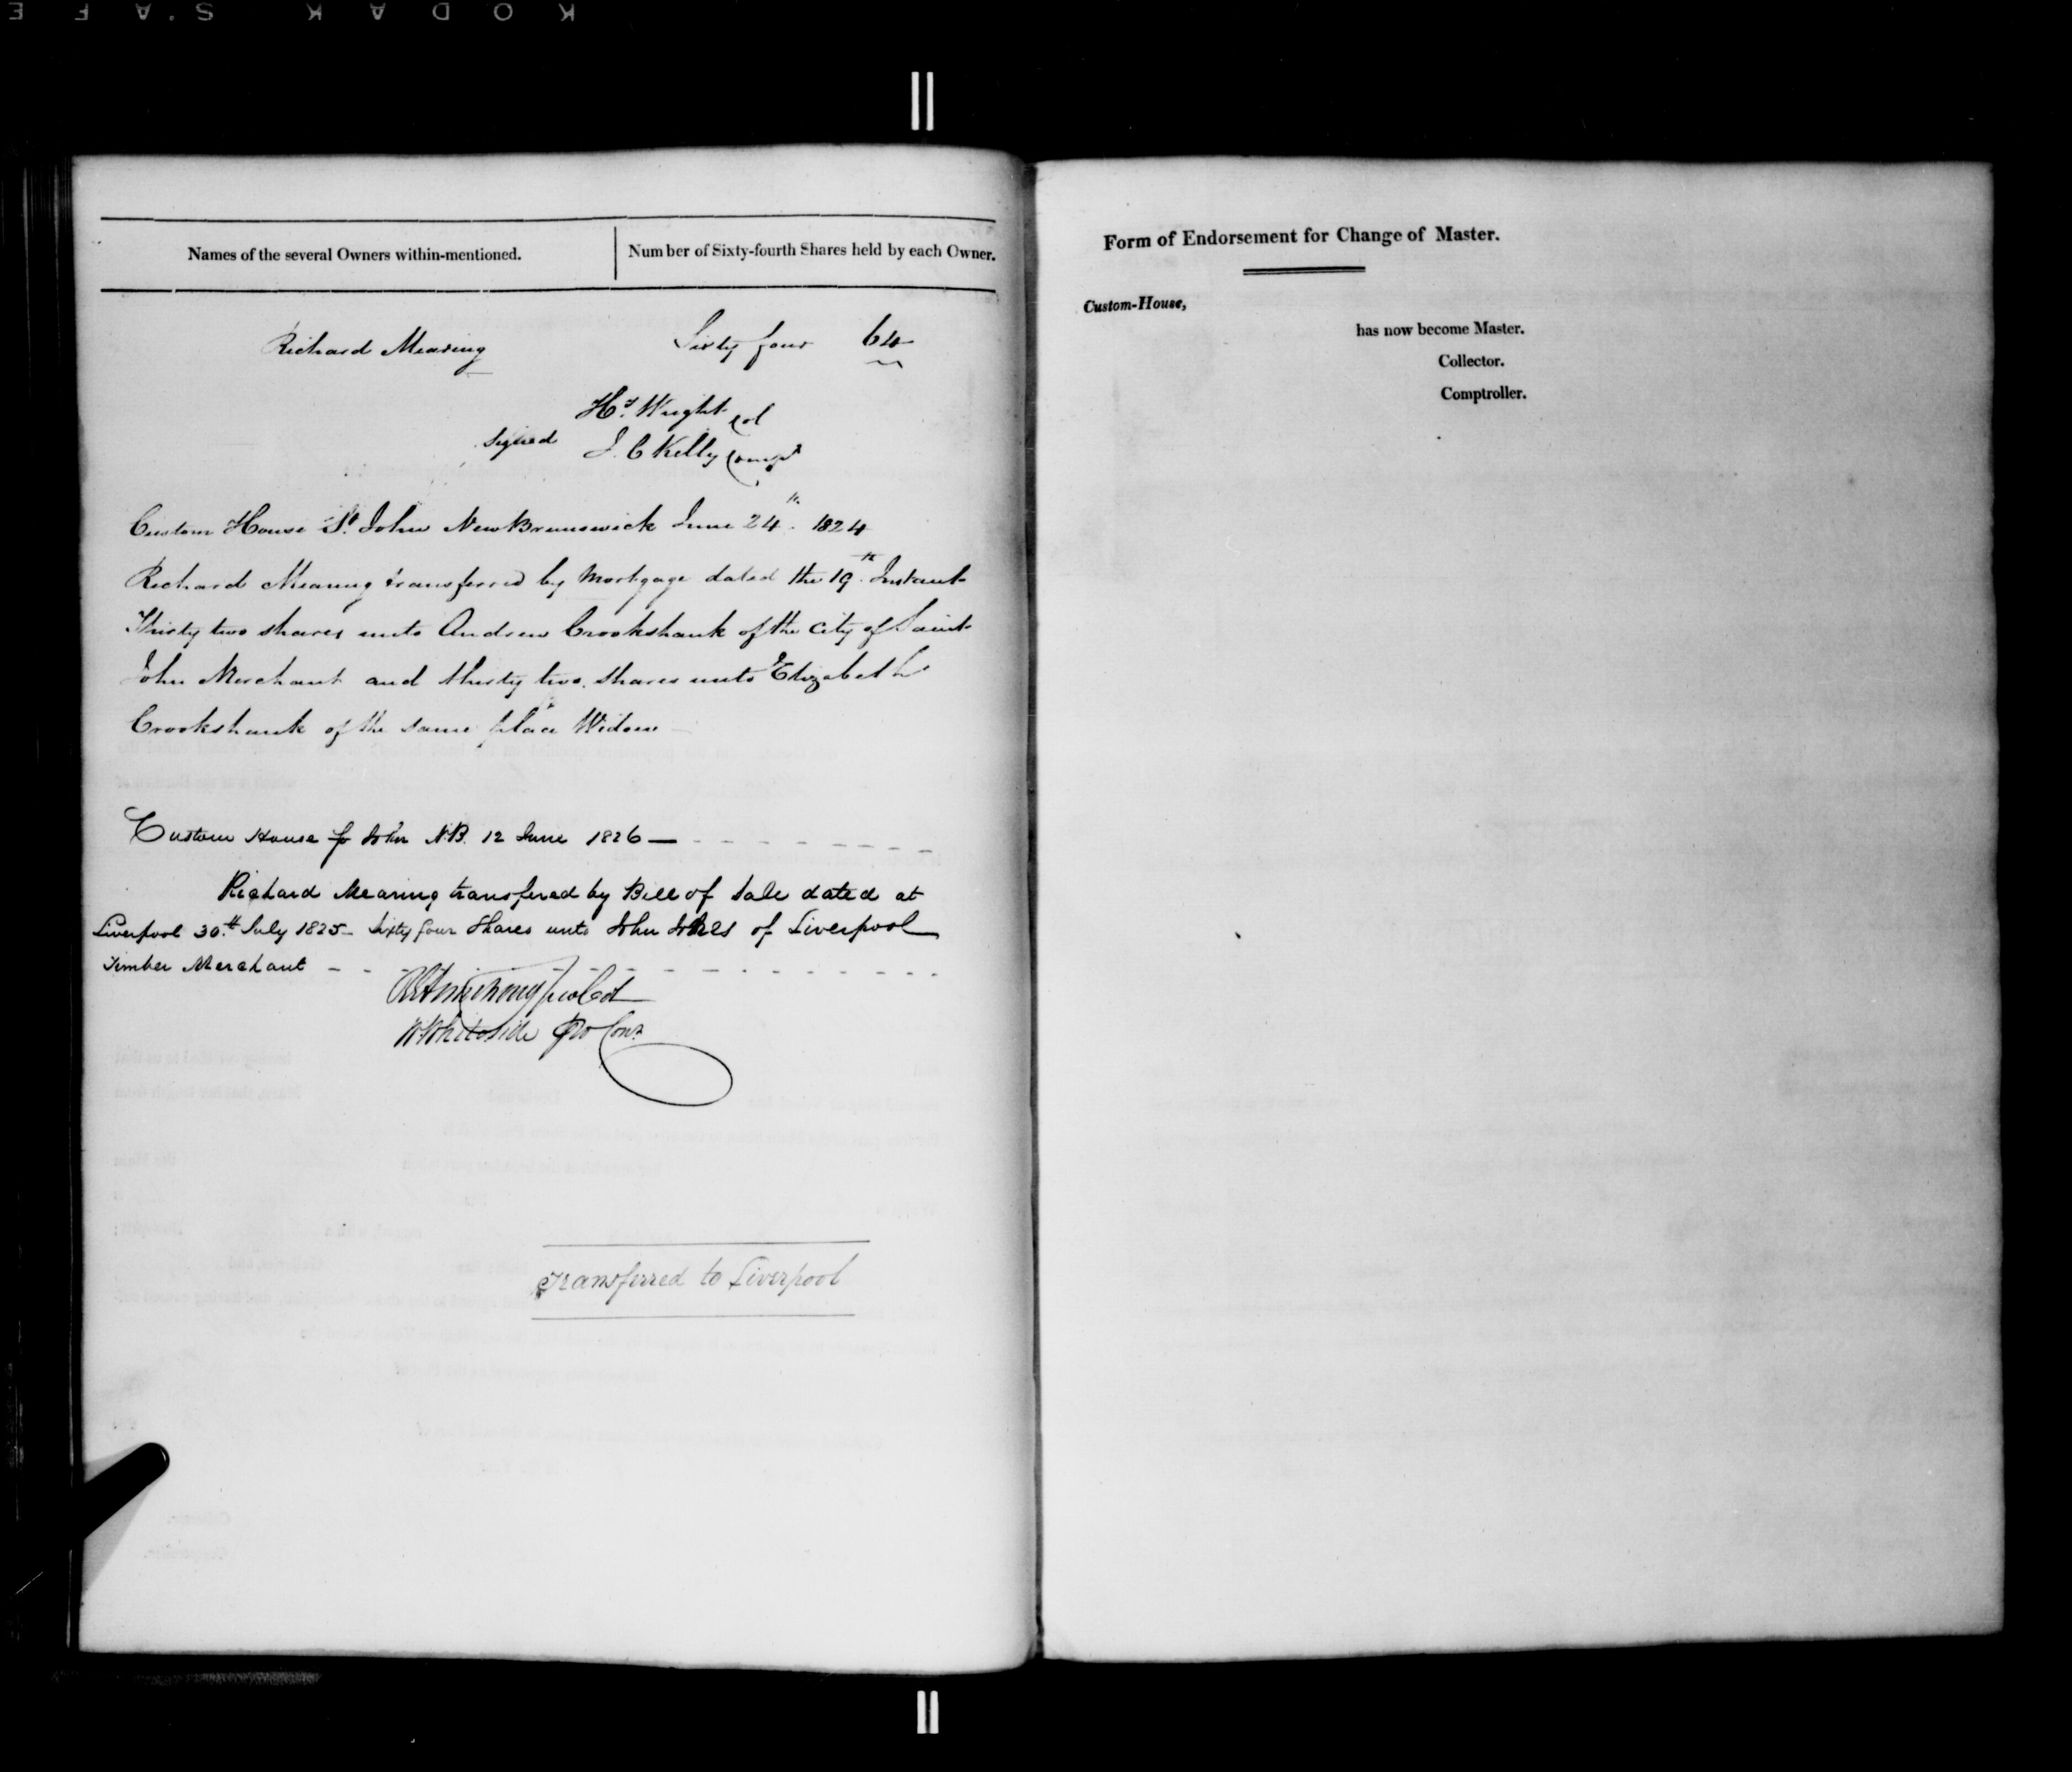 Names of the several Owners within-mentioned. Number of Sixty-fourth Shares held by each Owner.
Richard Mearing Sixty four 64
Hy. Wright Col
Signed J. C Kelly Compt
Custom House St. John New Brunswick June 24th. 1824
Richard Mearing transferred by Mortgage dated the 19th. Instant
Thirty two shares unto Andrew Crookshank of the City of Saint
John Merchant and thirty two shares unto Elizabeth
Crookshank of the same place Widow
Custom House St John N.B. 12 June 1826
Richard Mearing transfered by Bill of Sale dated at
Liverpool 30.th July 1825 Sixty four Shares unto John of Liverpool
Timber Merchant
Armstrong pro Col
W Whiteside pro Comr
Transferred to Liverpool
Form of Endorsement for Change of Master.
Custom-House,
has now become Master.
Collector.
Comptroller.